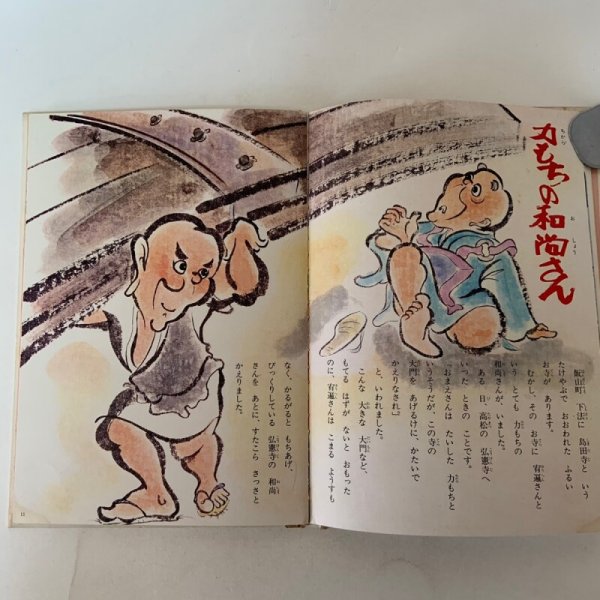 力もちの和尚さん
飯山町 下法に 島田寺と いう
たけやぶで おおわれた ふるい
お寺が あります。
むかし、その お寺に 宥遍さんと
いう とても 力もちの
和尚さんが、いました。
ある 日、高松の 弘憲寺へ
いった ときの ことです。
「おまえさんは たいした 力もちと
いうそうだが、この 寺の
大門を あげるけに、かたいで
かえりなされ。」
と、いわれました。
こんな 大きな 大門など、
もてる はずが ないと おもった
のに、宥遍さんは こまる ようすも
なく、かるがると もちあげ、
びっくりしている 弘憲寺の 和尚
さんを あとに、すたこら さっさと
かえりました。
11